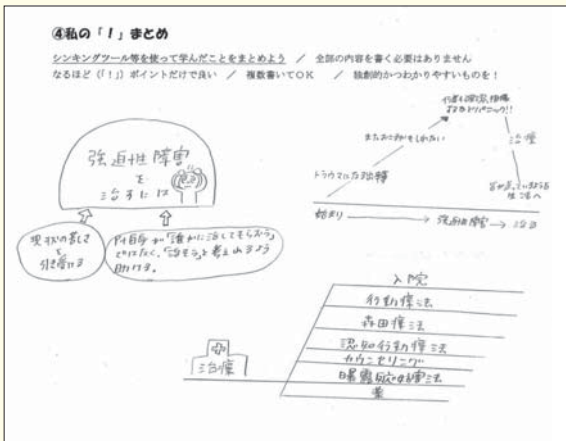 ④私の「！」まとめ
シンキングツール等を使って学んだことをまとめよう ／ 全部の内容を書く必要はありません
なるほど（「！」）ポイントだけで良い ／ 複数書いてOK ／ 独創的かつわかりやすいものを！
強迫性障害
を
治すには
現状の苦しさ
を
引き受ける
「誰かに治してもらおう」
ではなく、「治そう」と考えれるよう
助ける。
またおこるかもしれない
トラウマになる
治療
生活へ
始まり
強迫性障害
治る
入院
行動療法
森田療法
認知行動療法
カウンセリング
曝露反応妨害法
薬
治療